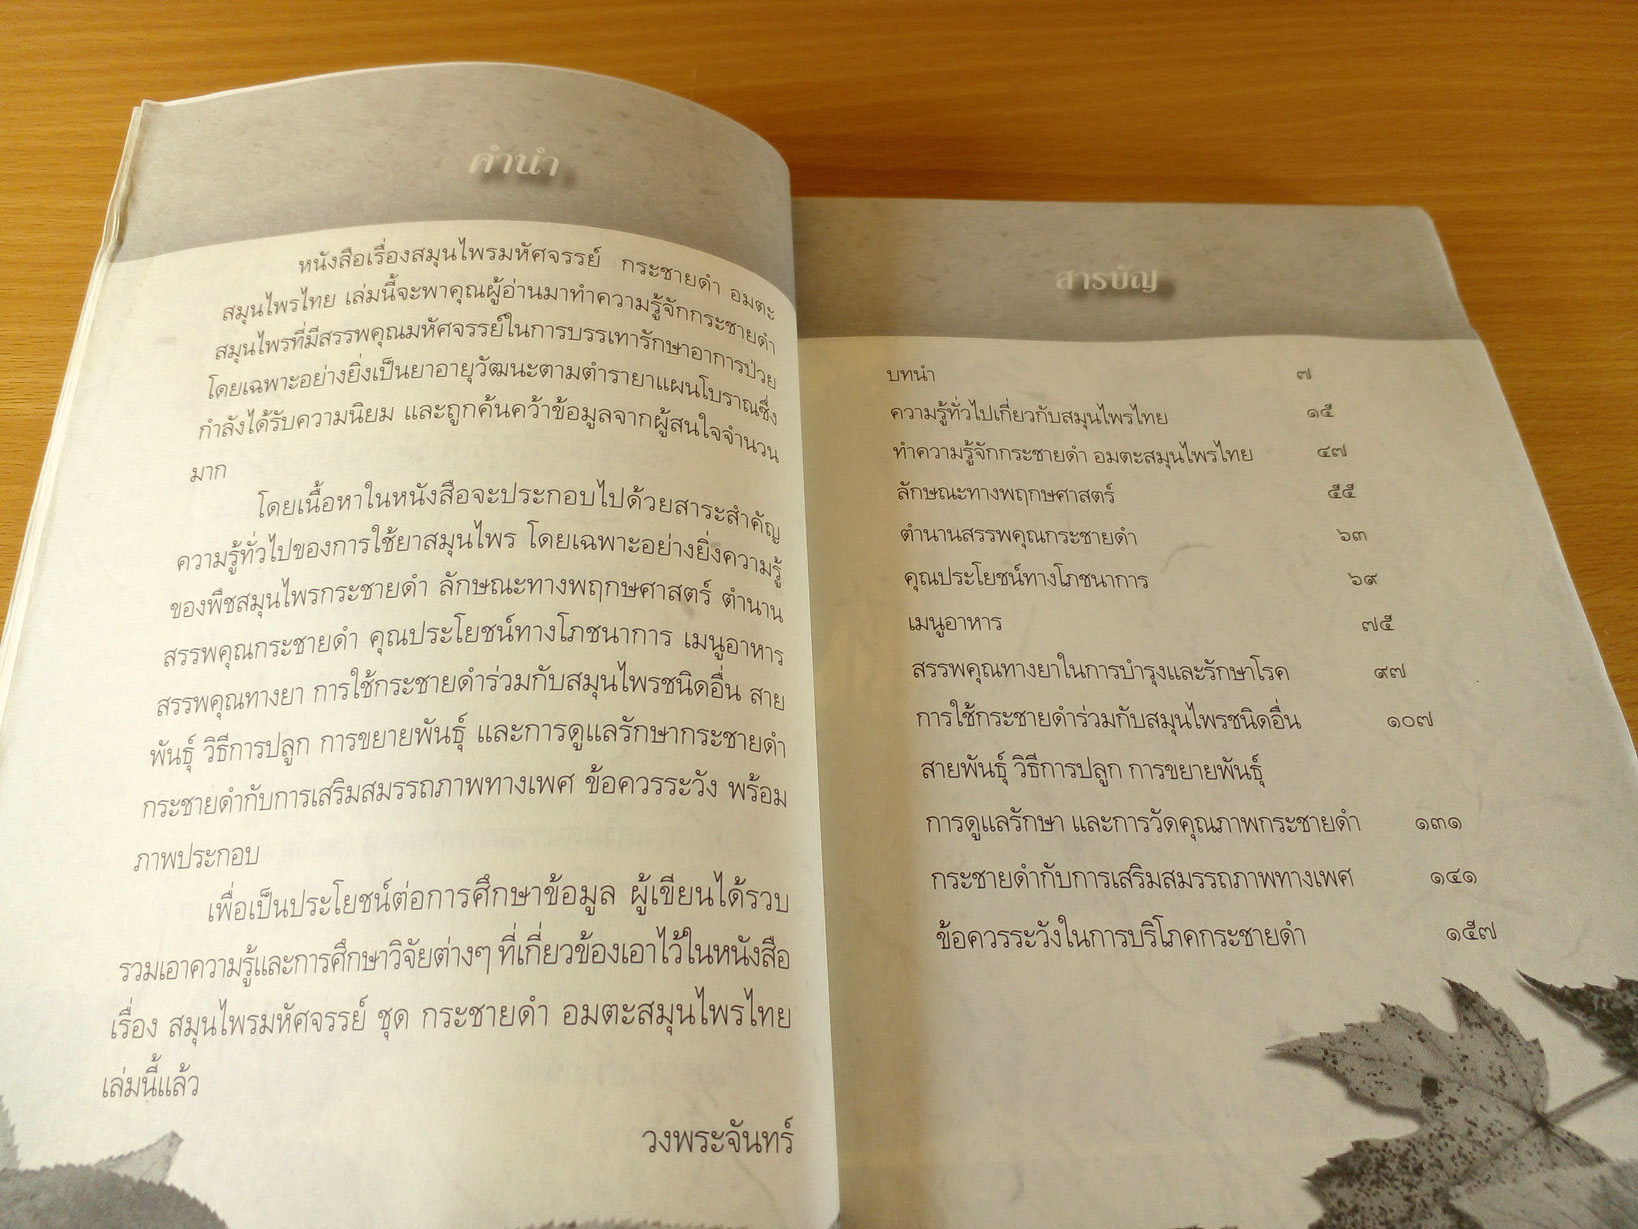 คำนำ
หนังสือเรื่องสมุนไพรมหัศจรรย์ กระชายดำ อมตะ
สมุนไพรไทย เล่มนี้จะพาคุณผู้อ่านมาทำความรู้จักกระชายดำ
สมุนไพรที่มีสรรพคุณมหัศจรรย์ในการบรรเทารักษาอาการป่วย
โดยเฉพาะอย่างยิ่งเป็นยาอายุวัฒนะตามตำรายาแผนโบราณซึ่ง
กำลังได้รับความนิยม และถูกค้นคว้าข้อมูลจากผู้สนใจจำนวน
มาก
โดยเนื้อหาในหนังสือจะประกอบไปด้วยสาระสำคัญ
ความรู้ทั่วไปของการใช้ยาสมุนไพร โดยเฉพาะอย่างยิ่งความรู้
ของพืชสมุนไพรกระชายดำ ลักษณะทางพฤกษศาสตร์ ตำนาน
สรรพคุณกระชายดำ คุณประโยชน์ทางโภชนาการ เมนูอาหาร
สรรพคุณทางยา การใช้กระชายดำร่วมกับสมุนไพรชนิดอื่น สาย
พันธุ์ วิธีการปลูก การขยายพันธุ์ และการดูแลรักษากระชายดำ
กระชายดำกับการเสริมสมรรถภาพทางเพศ ข้อควรระวัง พร้อม
ภาพประกอบ
เพื่อเป็นประโยชน์ต่อการศึกษาข้อมูล ผู้เขียนได้รวบ
รวมเอาความรู้และการศึกษาวิจัยต่างๆ ที่เกี่ยวข้องเอาไว้ในหนังสือ
เรื่อง สมุนไพรมหัศจรรย์ ชุด กระชายดำ อมตะสมุนไพรไทย
เล่มนี้แล้ว
วงพระจันทร์
สารบัญ
บทนำ ๗
ความรู้ทั่วไปเกี่ยวกับสมุนไพรไทย ๑๕
ทำความรู้จักกระชายดำ อมตะสมุนไพรไทย ๔๗
ลักษณะทางพฤกษศาสตร์ ๕๕
ตำนานสรรพคุณกระชายดำ ๖๓
คุณประโยชน์ทางโภชนาการ ๖๙
เมนูอาหาร ๗๕
สรรพคุณทางยาในการบำรุงและรักษาโรค ๙๗
การใช้กระชายดำร่วมกับสมุนไพรชนิดอื่น ๑๐๗
สายพันธุ์ วิธีการปลูก การขยายพันธุ์
การดูแลรักษา และการวัดคุณภาพกระชายดำ ๑๓๑
กระชายดำกับการเสริมสมรรถภาพทางเพศ ๑๔๑
ข้อควรระวังในการบริโภคกระชายดำ ๑๕๗